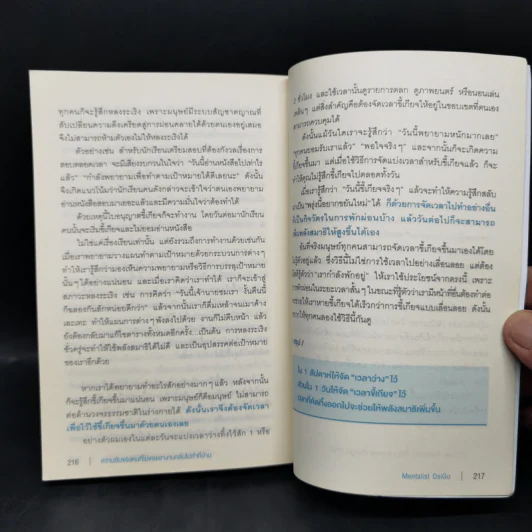 ทุกคนก็จะรู้สึกหลงระเริง เพราะมนุษย์มีระบบสัญชาตญาณที่
สับเปลี่ยนความตึงเครียดสู่การผ่อนคลายได้ด้วยตนเองอยู่เสมอ
จึงไม่สามารถห้ามตัวเองไม่ให้หลงระเริงได้
ตัวอย่างเช่น สำหรับนักเรียนเตรียมสอบที่ต้องกังวลเรื่องการ
สอบตลอดเวลา จะมีเสียงรบกวนในใจว่า “วันนี้อ่านหนังสือไปเท่าไร
แล้ว” “กำลังพยายามเพื่อทำตามเป้าหมายได้ดีเลยนะ” ดังนั้น
จึงเกิดแนวโน้มว่านักเรียนคนดังกล่าวจะเข้าใจว่าตนเองพยายาม
อ่านหนังสือมามากพอแล้วและจะมีความมั่นใจว่าต้องทำได้
ด้วยเหตุนี้ใบอนุญาตขี้เกียจก็จะทำงาน โดยวันต่อมานักเรียน
คนนั้นจะเริ่มขี้เกียจและไม่ยอมอ่านหนังสือ
ไม่ใช่แค่เรื่องเรียนเท่านั้น แต่ยังรวมถึงการทำงานด้วยเช่นกัน
เมื่อเราพยายามวางแผนทำตามเป้าหมายด้วยกระบวนการต่างๆ
ทำให้เรารู้สึกว่ามองเห็นความพยายามหรือวิธีการบรรลุเป้าหมาย
นั้นๆ ได้อย่างแน่นอน และเมื่อเราคิดว่าเราทำได้ เราก็จะเข้าสู่
สภาวะหลงระเริง เช่น การคิดว่า “วันนี้เจ้านายชมเรา งั้นคืนนี้
ก็ฉลองกันสักหน่อยดีกว่า” แล้วจากนั้นเราก็ดื่มเหล้าจนเมาค้าง
เละเทะ ทำให้แผนการต่างๆ พังลงไปด้วย งานก็ไม่คืบหน้า แล้ว
ยังต้องกลับมาแก้ไขตารางทั้งหมดอีกครั้ง...เป็นต้น การหลงระเริง
ชั่วครู่จะทำให้ใช้พลังสมาธิได้ไม่ดี และเป็นอุปสรรคต่อเป้าหมาย
ของเราอีกด้วย
หากเราได้พยายามทำอะไรสักอย่างมากๆ แล้ว หลังจากนั้น
ก็จะรู้สึกขี้เกียจขึ้นมาแน่นอน เพราะมนุษย์ก็คือมนุษย์ ไม่สามารถ
ต่อต้านวงจรธรรมชาติในร่างกายได้ ดังนั้นเราจึงต้องจัดเวลา
เพื่อไว้ใช้ขี้เกียจขึ้นมาด้วยตนเองเลย
อย่างตัวผมเองในแต่ละวันจะแบ่งเวลาว่างทิ้งไว้สัก 1 หรือ
216
2 ชั่วโมง และใช้เวลานั้นดูรายการตลก ดูภาพยนตร์ หรือนอนเล่น
เฉยๆ แต่สิ่งสำคัญคือต้องจัดเวลาขี้เกียจให้อยู่ในขอบเขตที่ตนเอง
สามารถควบคุมได้
ดังนั้นแม้วันใดเราจะรู้สึกว่า “วันนี้พยายามหนักมากเลย”
ทุกคนยอมรับเราแล้ว” “พอใจจริงๆ” และจากนั้นก็จะเกิดความ
ขี้เกียจขึ้นมา แต่เมื่อใช้วิธีการจัดแบ่งเวลาสำหรับขี้เกียจแล้ว ก็จะ
ทำให้คุณไม่รู้สึกขี้เกียจไปตลอดทั้งวัน
เมื่อเรารู้สึกว่า “วันนี้ขี้เกียจจริงๆ” แล้วจะทำให้ความรู้สึกสลับ
เป็น “พรุ่งนี้อยากขยันใหม่” ได้ ก็ด้วยการจัดเวลาไปทำอย่างอื่น
ซึ่งเป็นกิจวัตรในการพักผ่อนบ้าง แล้ววันต่อไปก็จะสามารถ
ส่งพลังสมาธิให้สูงขึ้นได้เอง
อันที่จริงมนุษย์ทุกคนสามารถจัดเวลาขี้เกียจขึ้นมาเองได้โดย
รู้ตัวอยู่แล้ว ซึ่งวิธีนี้ไม่ใช่การใช้เวลาไปอย่างเลื่อนลอย แต่ต้อง
รู้ตัวว่า “เรากำลังพักอยู่” ให้เราใช้ประโยชน์จากตรงนี้ เพราะ
การผ่อนในระยะเวลาสั้นๆ ในขณะที่รู้ตัวว่าเรามีหน้าที่อื่นต้องทำต่อ
จะทำให้เราหายขี้เกียจได้เร็วกว่าการขี้เกียจแบบเลื่อนลอย ดังนั้น
ควรให้ทุกคนลองใช้วิธีนี้กันดู
สรุป !
ใน 1 สัปดาห์ให้จัด “เวลาว่าง” ไว้
ส่วนใน 1 วันให้จัด “เวลาขี้เกียจ” ไว้
Mentalist DaiGo
217